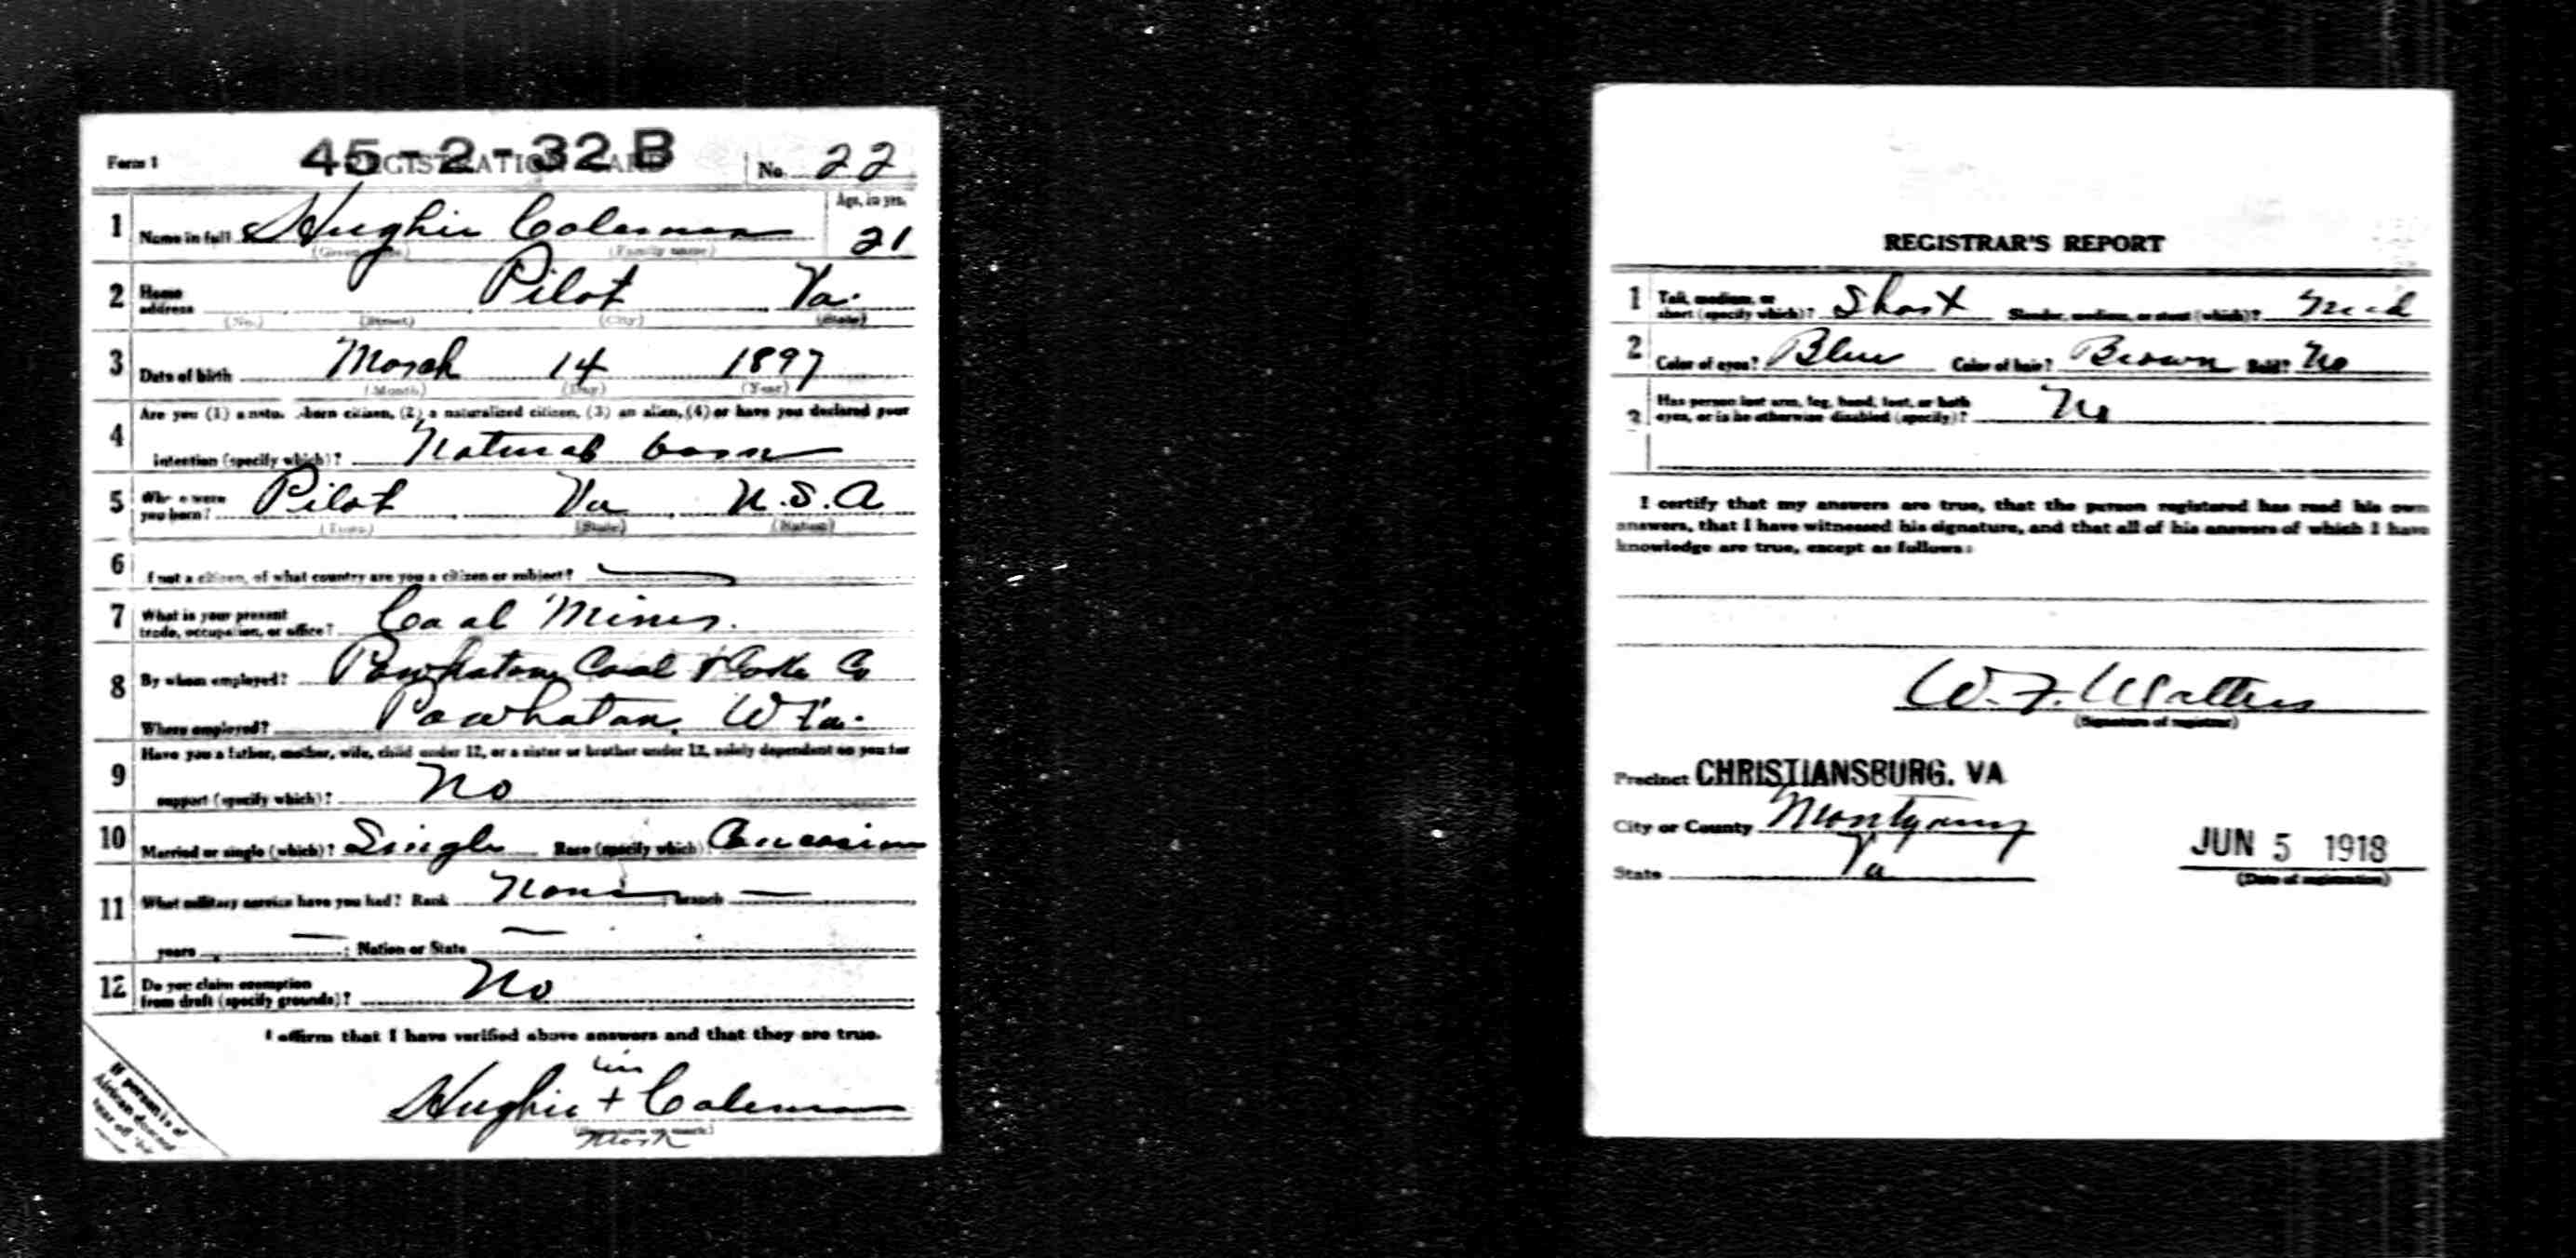 Form 1 45-2-32 B REGISTRATION CARD No. 22
1 Name in full Hughie Coleman Age, in yrs. 21
(Given name) (Family name)
2 Home address Pilot Va.
(No.) (Street) (City) (State)
3 Date of birth March 14 1897
(Month) (Day) (Year)
Are you (1) a natural-born citizen, (2) a naturalized citizen, (3) an alien, (4) or have you declared your
4 intention (specify which)? Natural born
5 Where were you born? Pilot Va U.S.A
(Town) (State) (Nation)
6 If not a citizen, of what country are you a citizen or subject? —
7 What is your present trade, occupation, or office? Coal Miner.
8 By whom employed? Powhatan Coal & Coke Co
Where employed? Powhatan, W Va.
Have you a father, mother, wife, child under 12, or a sister or brother under 12, solely dependent on you for
9 support (specify which)? No
10 Married or single (which)? Single Race (specify which)? Caucasian
11 What military service have you had? Rank None ; branch —
years — ; Nation or State —
12 Do you claim exemption from draft (specify grounds)? No
I affirm that I have verified above answers and that they are true.
his
Hughie + Coleman
(Signature or mark)
mark
If person is of
African descent
tear off
REGISTRAR'S REPORT
1 Tall, medium, or short (specify which)? Short Slender, medium, or stout (which)? Med
2 Color of eyes? Blue Color of hair? Brown Bald? No
3 Has person lost arm, leg, hand, foot, or both eyes, or is he otherwise disabled (specify)? No
I certify that my answers are true, that the person registered has read his own
answers, that I have witnessed his signature, and that all of his answers of which I have
knowledge are true, except as follows:
W. F. Walters
(Signature of registrar)
Precinct CHRISTIANSBURG. VA
City or County Montgomery
State Va
JUN 5 1918
(Date of registration)